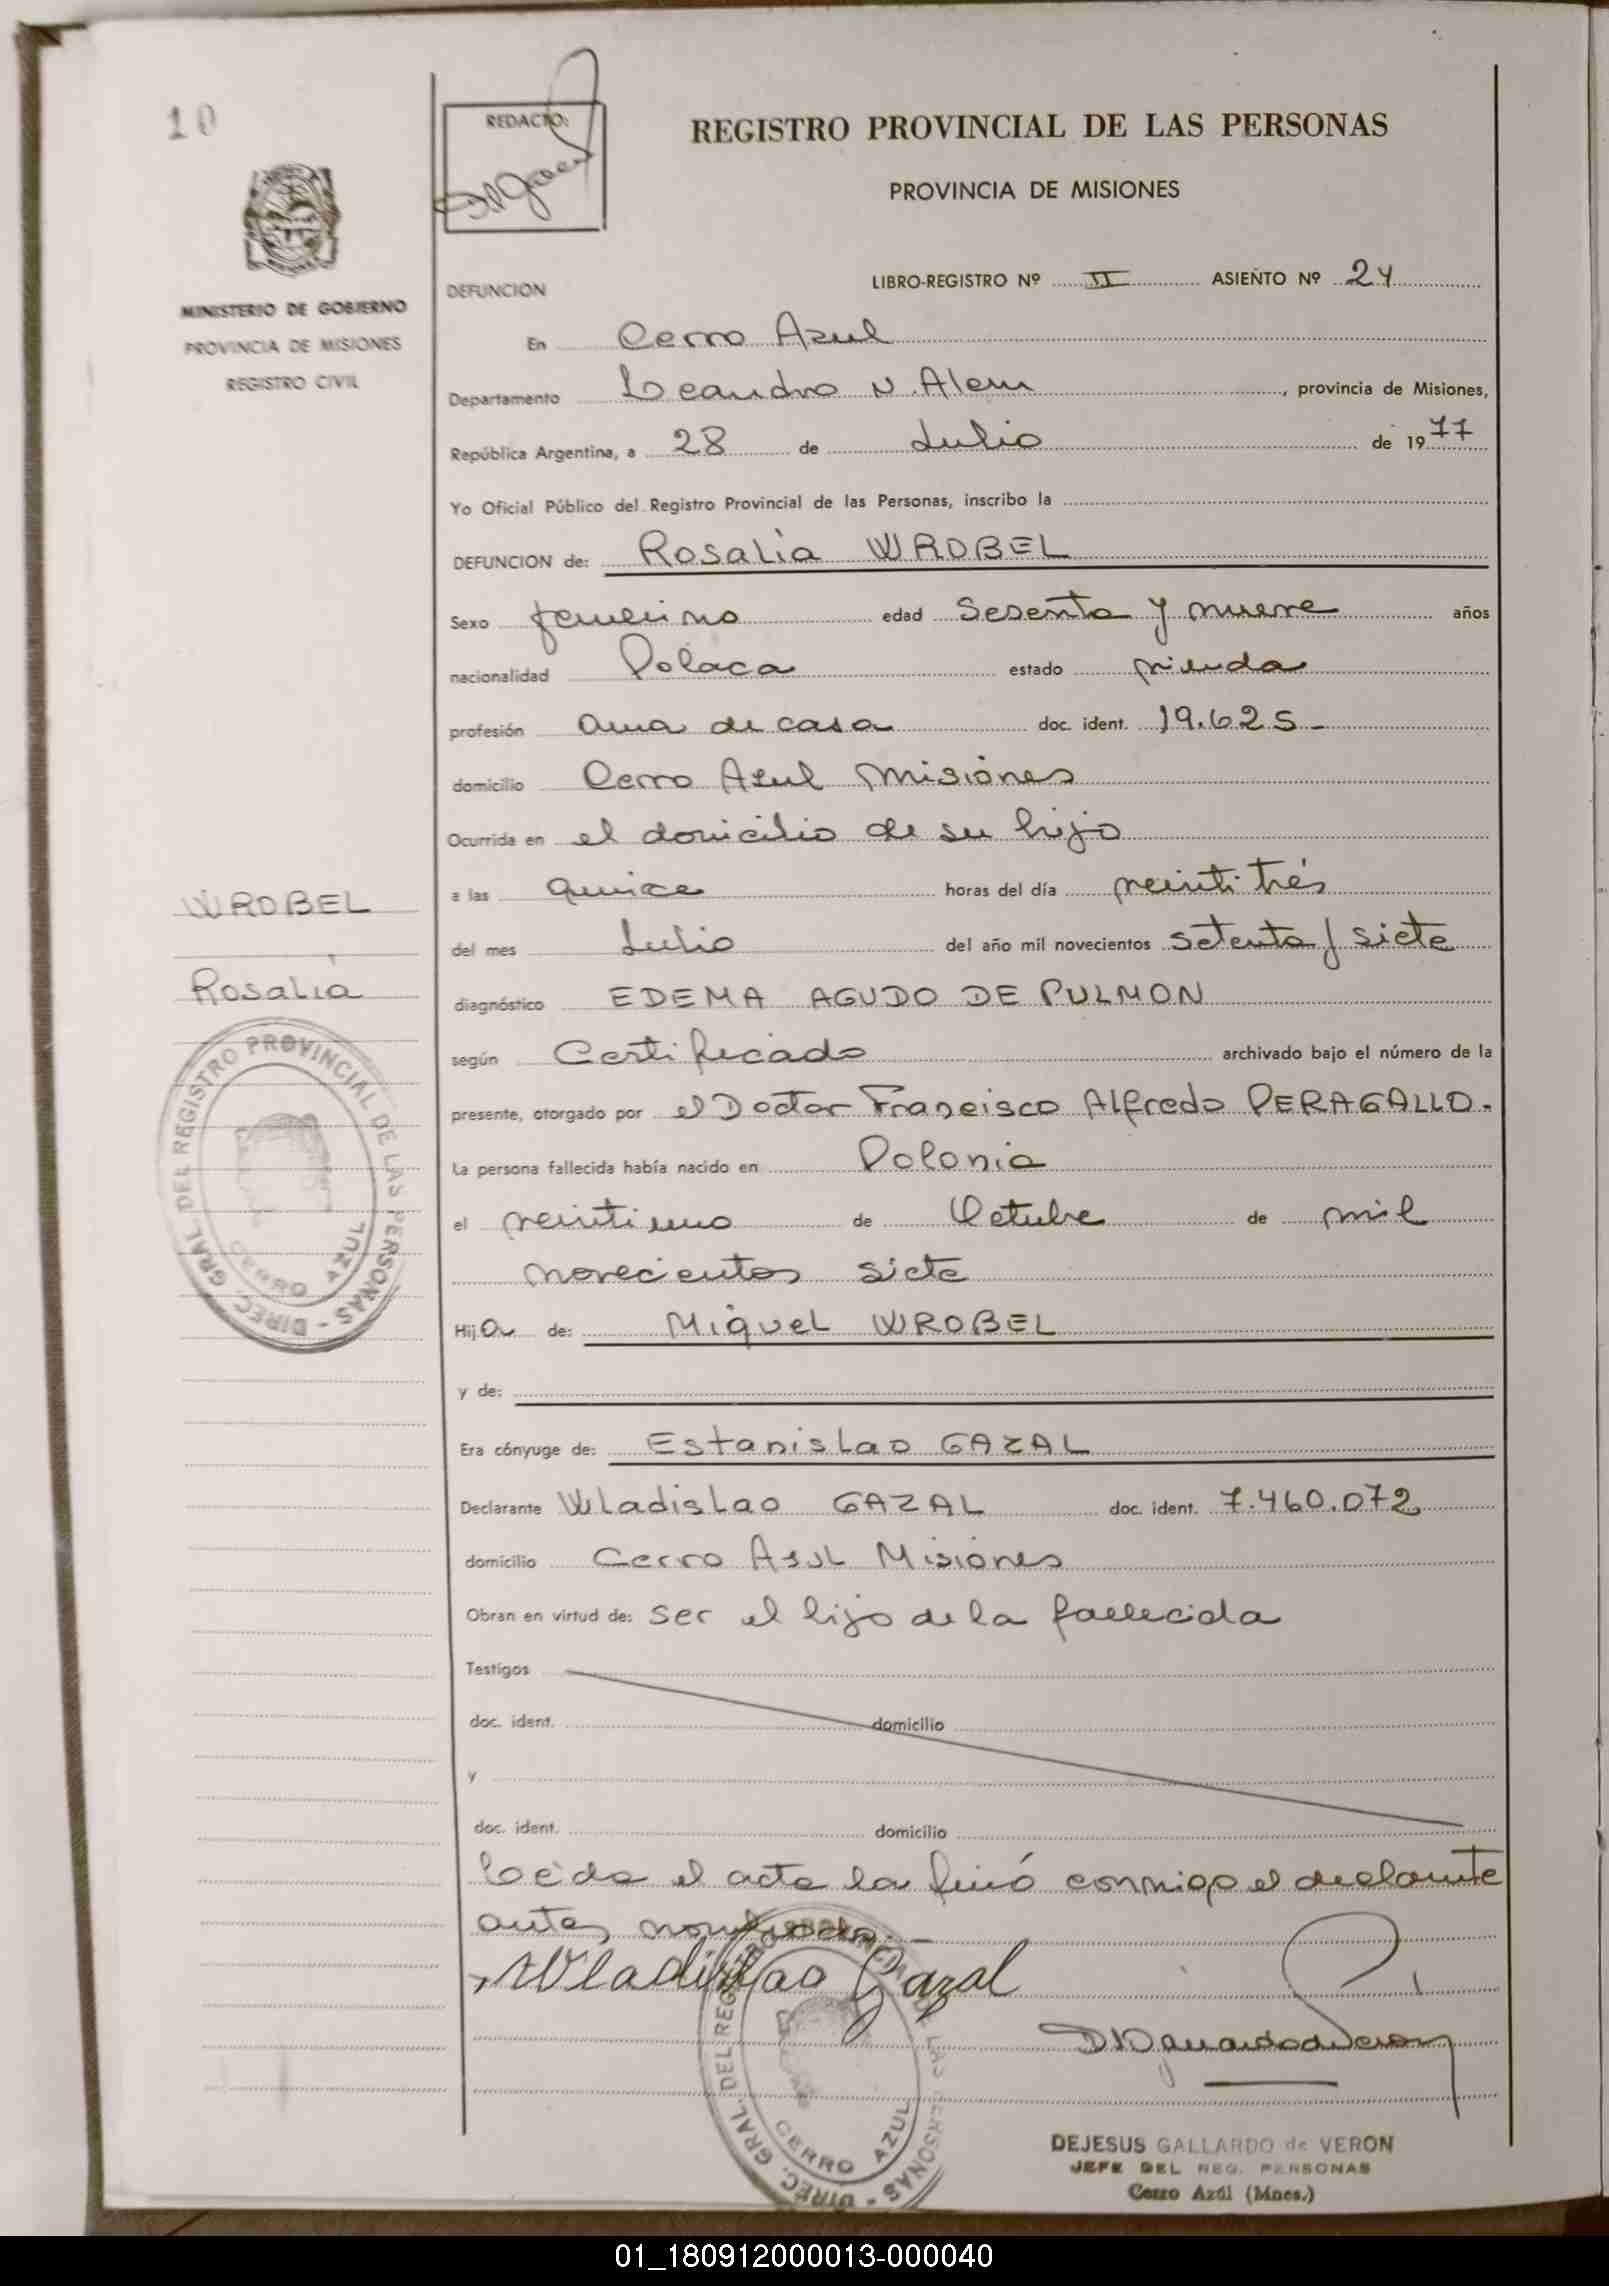 10
REDACTO:
REGISTRO PROVINCIAL DE LAS PERSONAS
PROVINCIA DE MISIONES
MINISTERIO DE GOBIERNO
PROVINCIA DE MISIONES
REGISTRO CIVIL
DEFUNCION
LIBRO-REGISTRO Nº II ASIENTO Nº 24
En Cerro Azul
Departamento Leandro N. Alem, provincia de Misiones,
República Argentina, a 28 de Julio de 1977
Yo Oficial Público del Registro Provincial de las Personas, inscribo la
DEFUNCION de: Rosalía WROBEL
Sexo femenino edad Sesenta y nueve años
nacionalidad Polaca estado viuda
profesión ama de casa doc. ident. 19.625-
domicilio Cerro Azul Misiones
Ocurrida en el domicilio de su hijo
a las quince horas del día veinti trés
del mes Julio del año mil novecientos setenta y siete
WROBEL
Rosalía
diagnóstico EDEMA AGUDO DE PULMON
según Certificado archivado bajo el número de la
presente, otorgado por el Doctor Francisco Alfredo PERAGALLO.
La persona fallecida había nacido en Polonia
el veintiuno de Octubre de mil
novecientos siete
Hija de: Miguel WROBEL
y de:
Era cónyuge de: Estanislao GAZAL
Declarante Wladislao GAZAL doc. ident. 7.460.072
domicilio Cerro Asul Misiones
Obran en virtud de: ser el hijo de la fallecida
Testigos
doc. ident. domicilio
y
doc. ident. domicilio
Leída el acta la firmó conmigo el declarante
antes nombrado.-
Wladislao Gazal
DIREC. GRAL. DEL REGISTRO PROVINCIAL DE LAS PERSONAS - CERRO AZUL
DIREC. GRAL. DEL REG LAS PERSONAS - CERRO AZUL
DEJESUS GALLARDO de VERON
JEFE DEL REG. PERSONAS
Cerro Azúl (Mnes.)
01_180912000013-000040